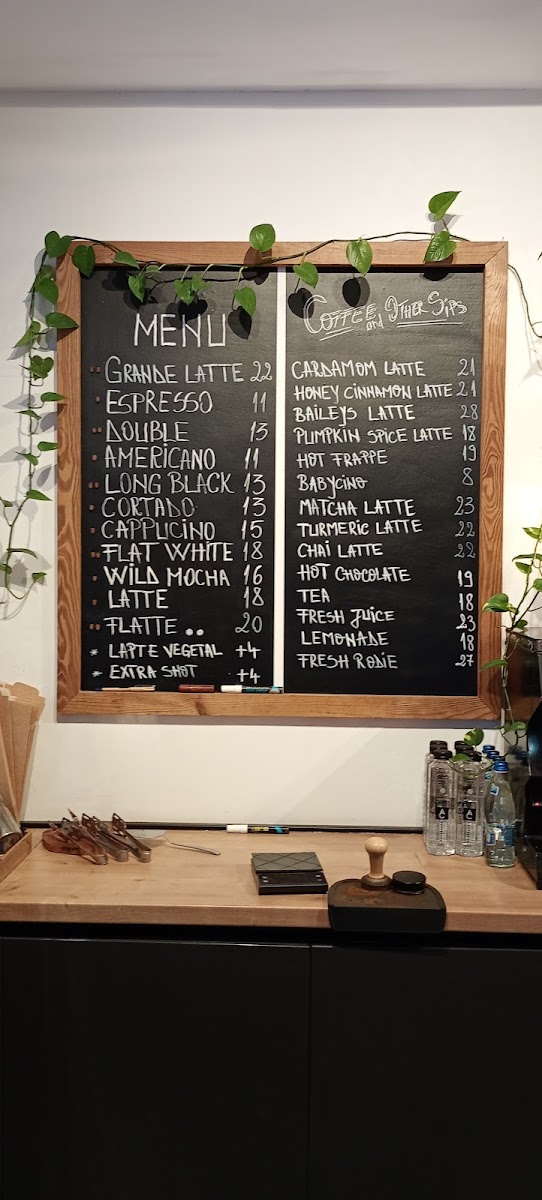 MENU
GRANDE LATTE 22
ESPRESSO 11
DOUBLE 13
AMERICANO 11
LONG BLACK 13
CORTADO 13
CAPPUCINO 15
FLAT WHITE 18
WILD MOCHA 16
LATTE 18
FLATTE .. 20
* LAPTE VEGETAL +4
* EXTRA SHOT +4
COFFEE and OTHER SIPS
CARDAMOM LATTE 21
HONEY CINNAMON LATTE 21
BAILEYS LATTE 28
PUMPKIN SPICE LATTE 18
HOT FRAPPE 19
BABYCINO 8
MATCHA LATTE 23
TURMERIC LATTE 22
CHAI LATTE 22
HOT CHOCOLATE 19
TEA 18
FRESH JUICE 23
LEMONADE 18
FRESH RODIE 27